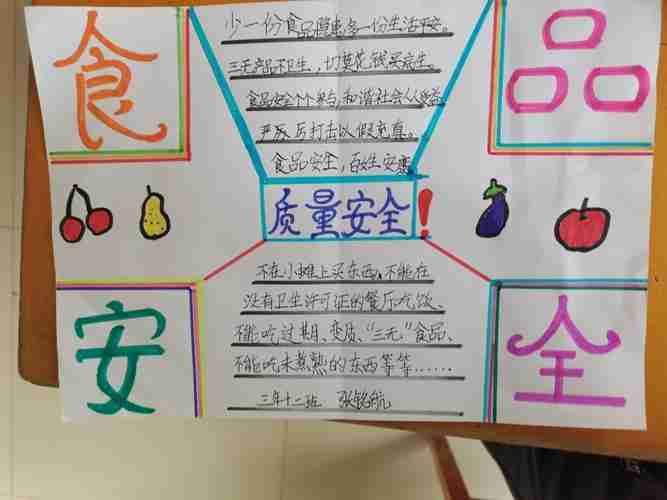 食
品
少一份食品隐患多一份生活平安。
三无产品不卫生,切莫花钱买病生。
食品安全个个参与,和谐社会人人受益
严厉打击以假充真。
食品安全,百姓安康
质量安全!
不在小摊上买东西,不能在
没有卫生许可证的餐厅吃饭、
不能吃过期、变质、“三无”食品、
不能吃未煮熟的东西等等……
三年十二班 张铭航
安
全